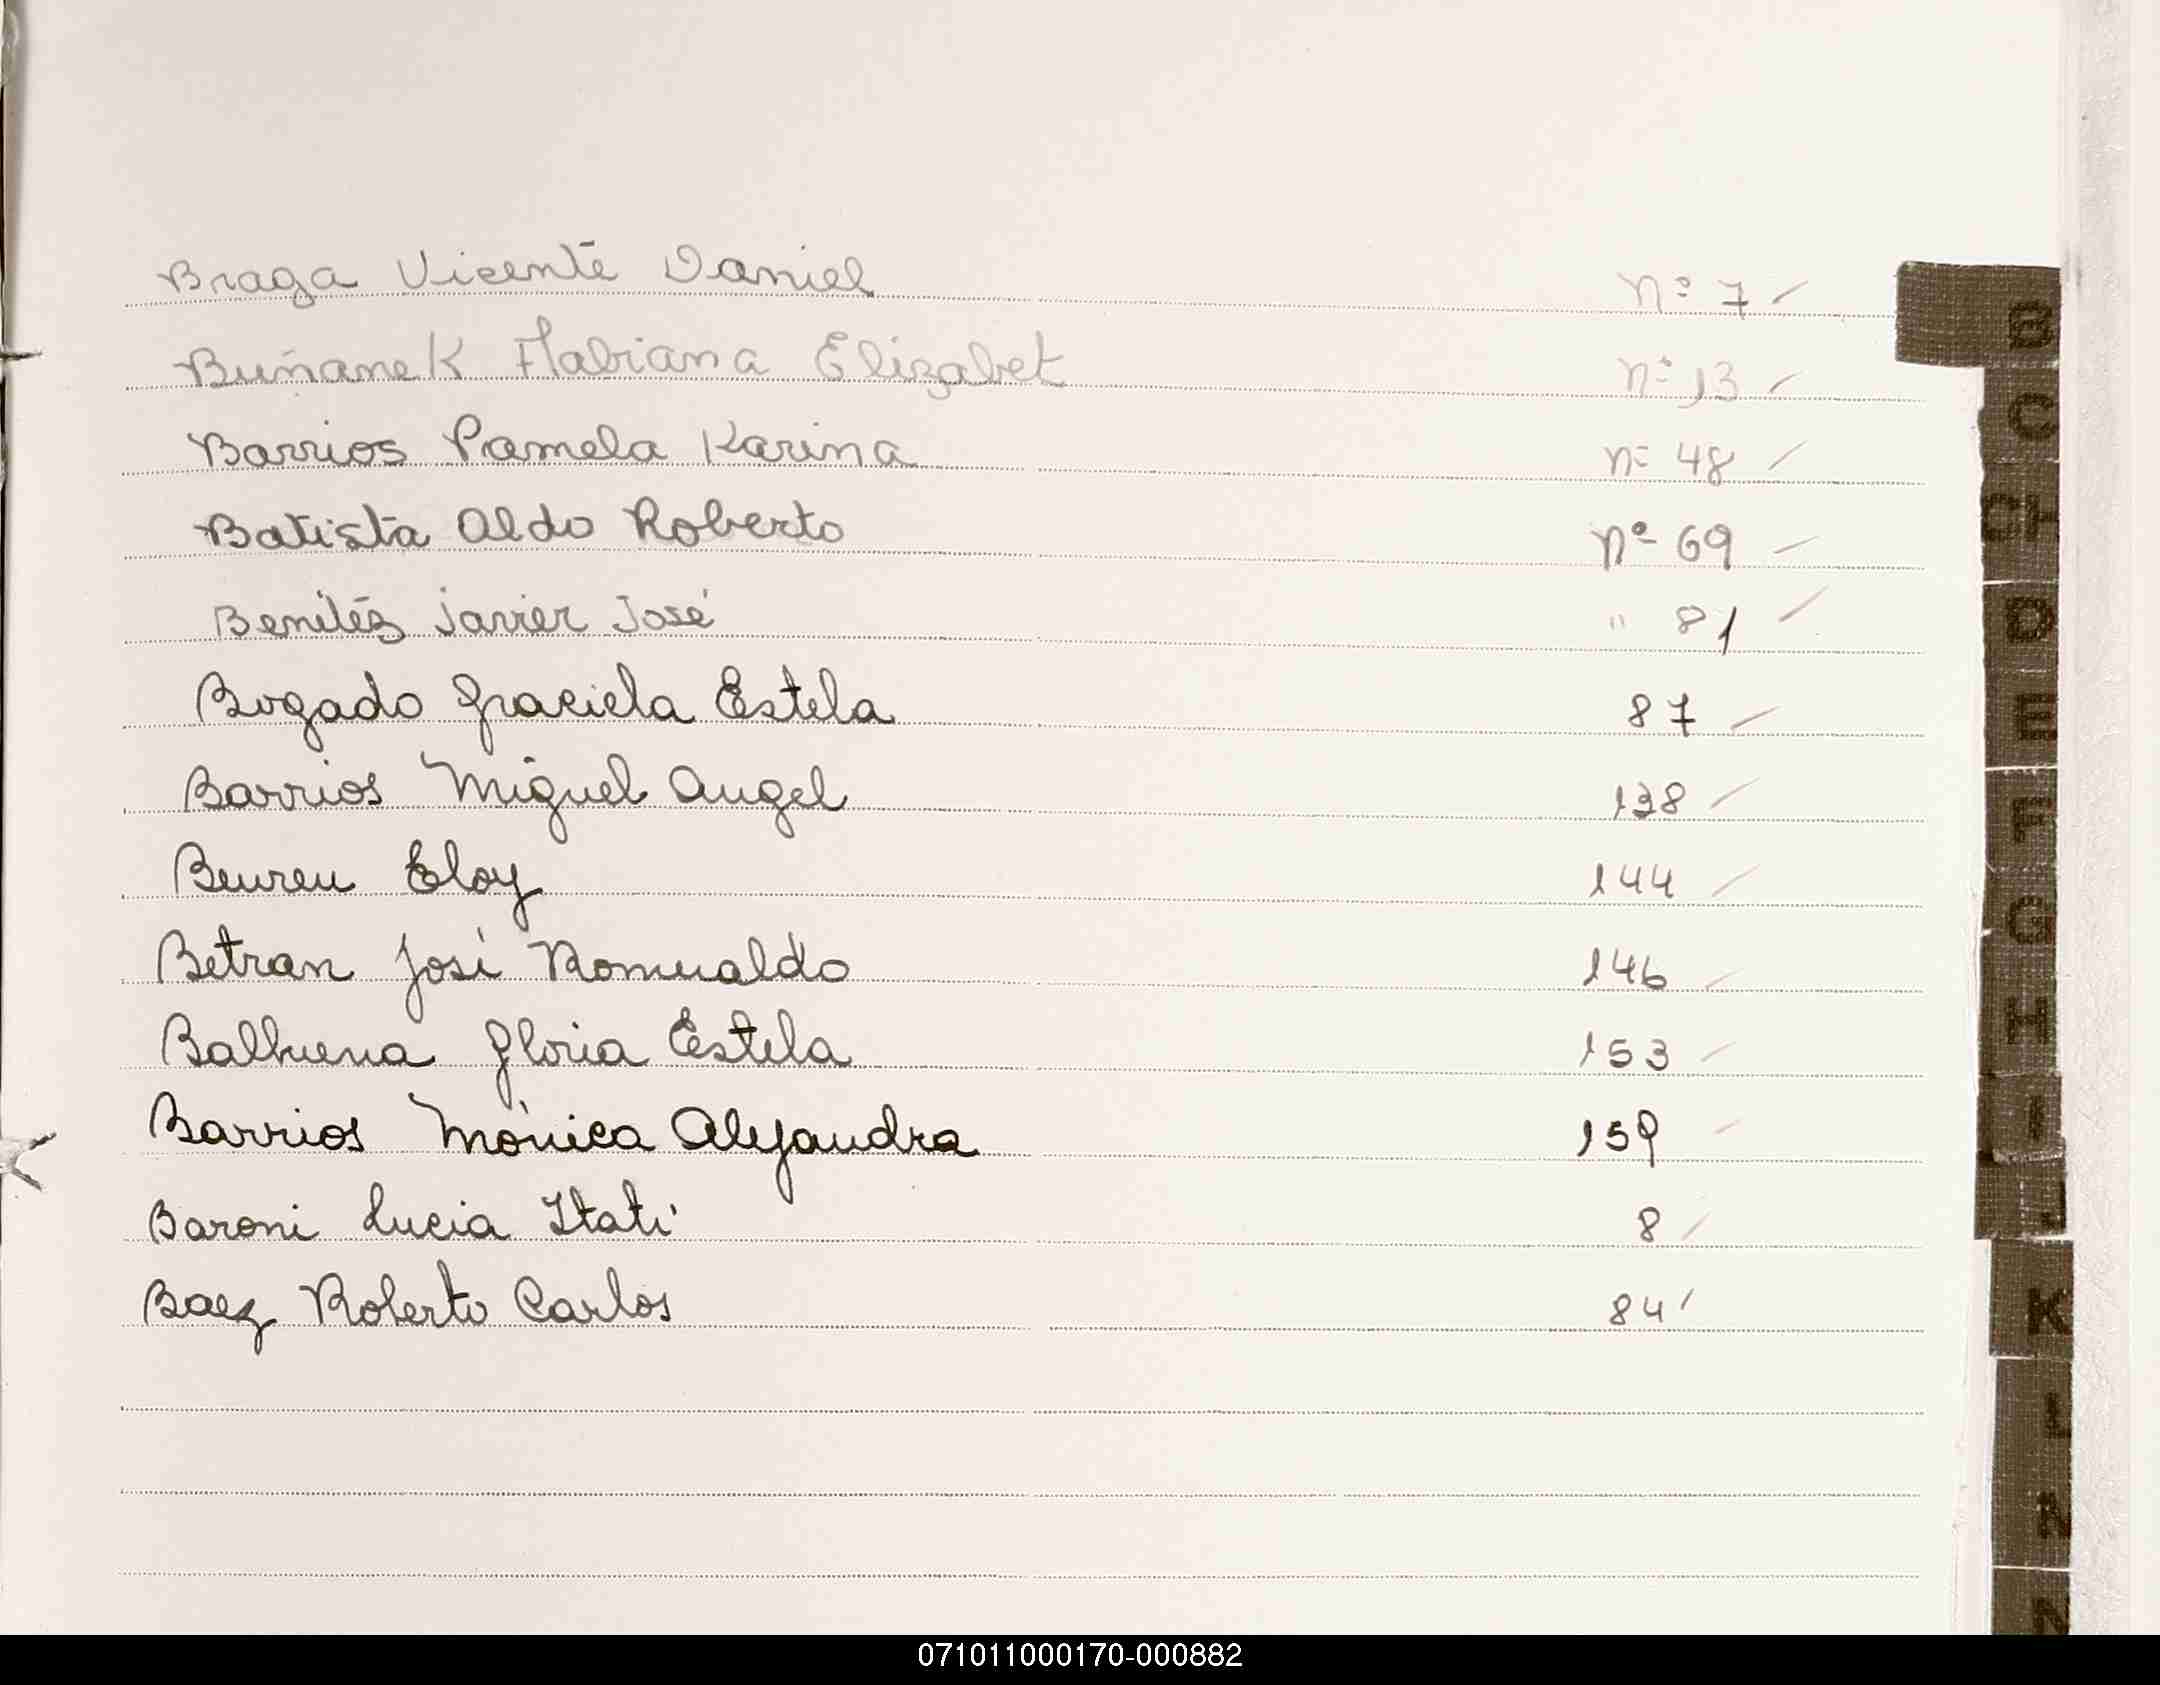 Braga Vicente Daniel nº 7
Flabiana Elizabet nº 13
Barrios Pamela Karina nº 48
Batista Aldo Roberto nº 69
Benítez Javier José " 81
Bogado Graciela Estela 87
Barrios Miguel Angel 138
Beureu Eloy 144
Betran José Romualdo 146
Balbuena Gloria Estela 153
Barrios Mónica Alejandra 159
Baroni Lucia Itatí 8
Baez Roberto Carlos 84
B
C
CH
D
E
F
G
H
I
J
K
L
N
071011000170-000882